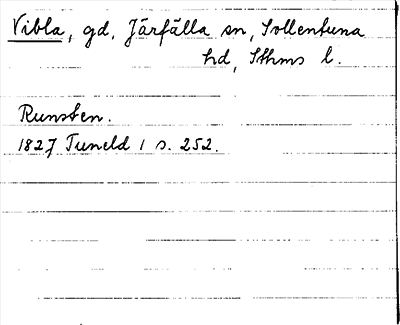 Vibla, gd, Järfälla sn, Sollentuna
hd, Sthms l.
Runsten.
1827 Tuneld 1 s. 252.